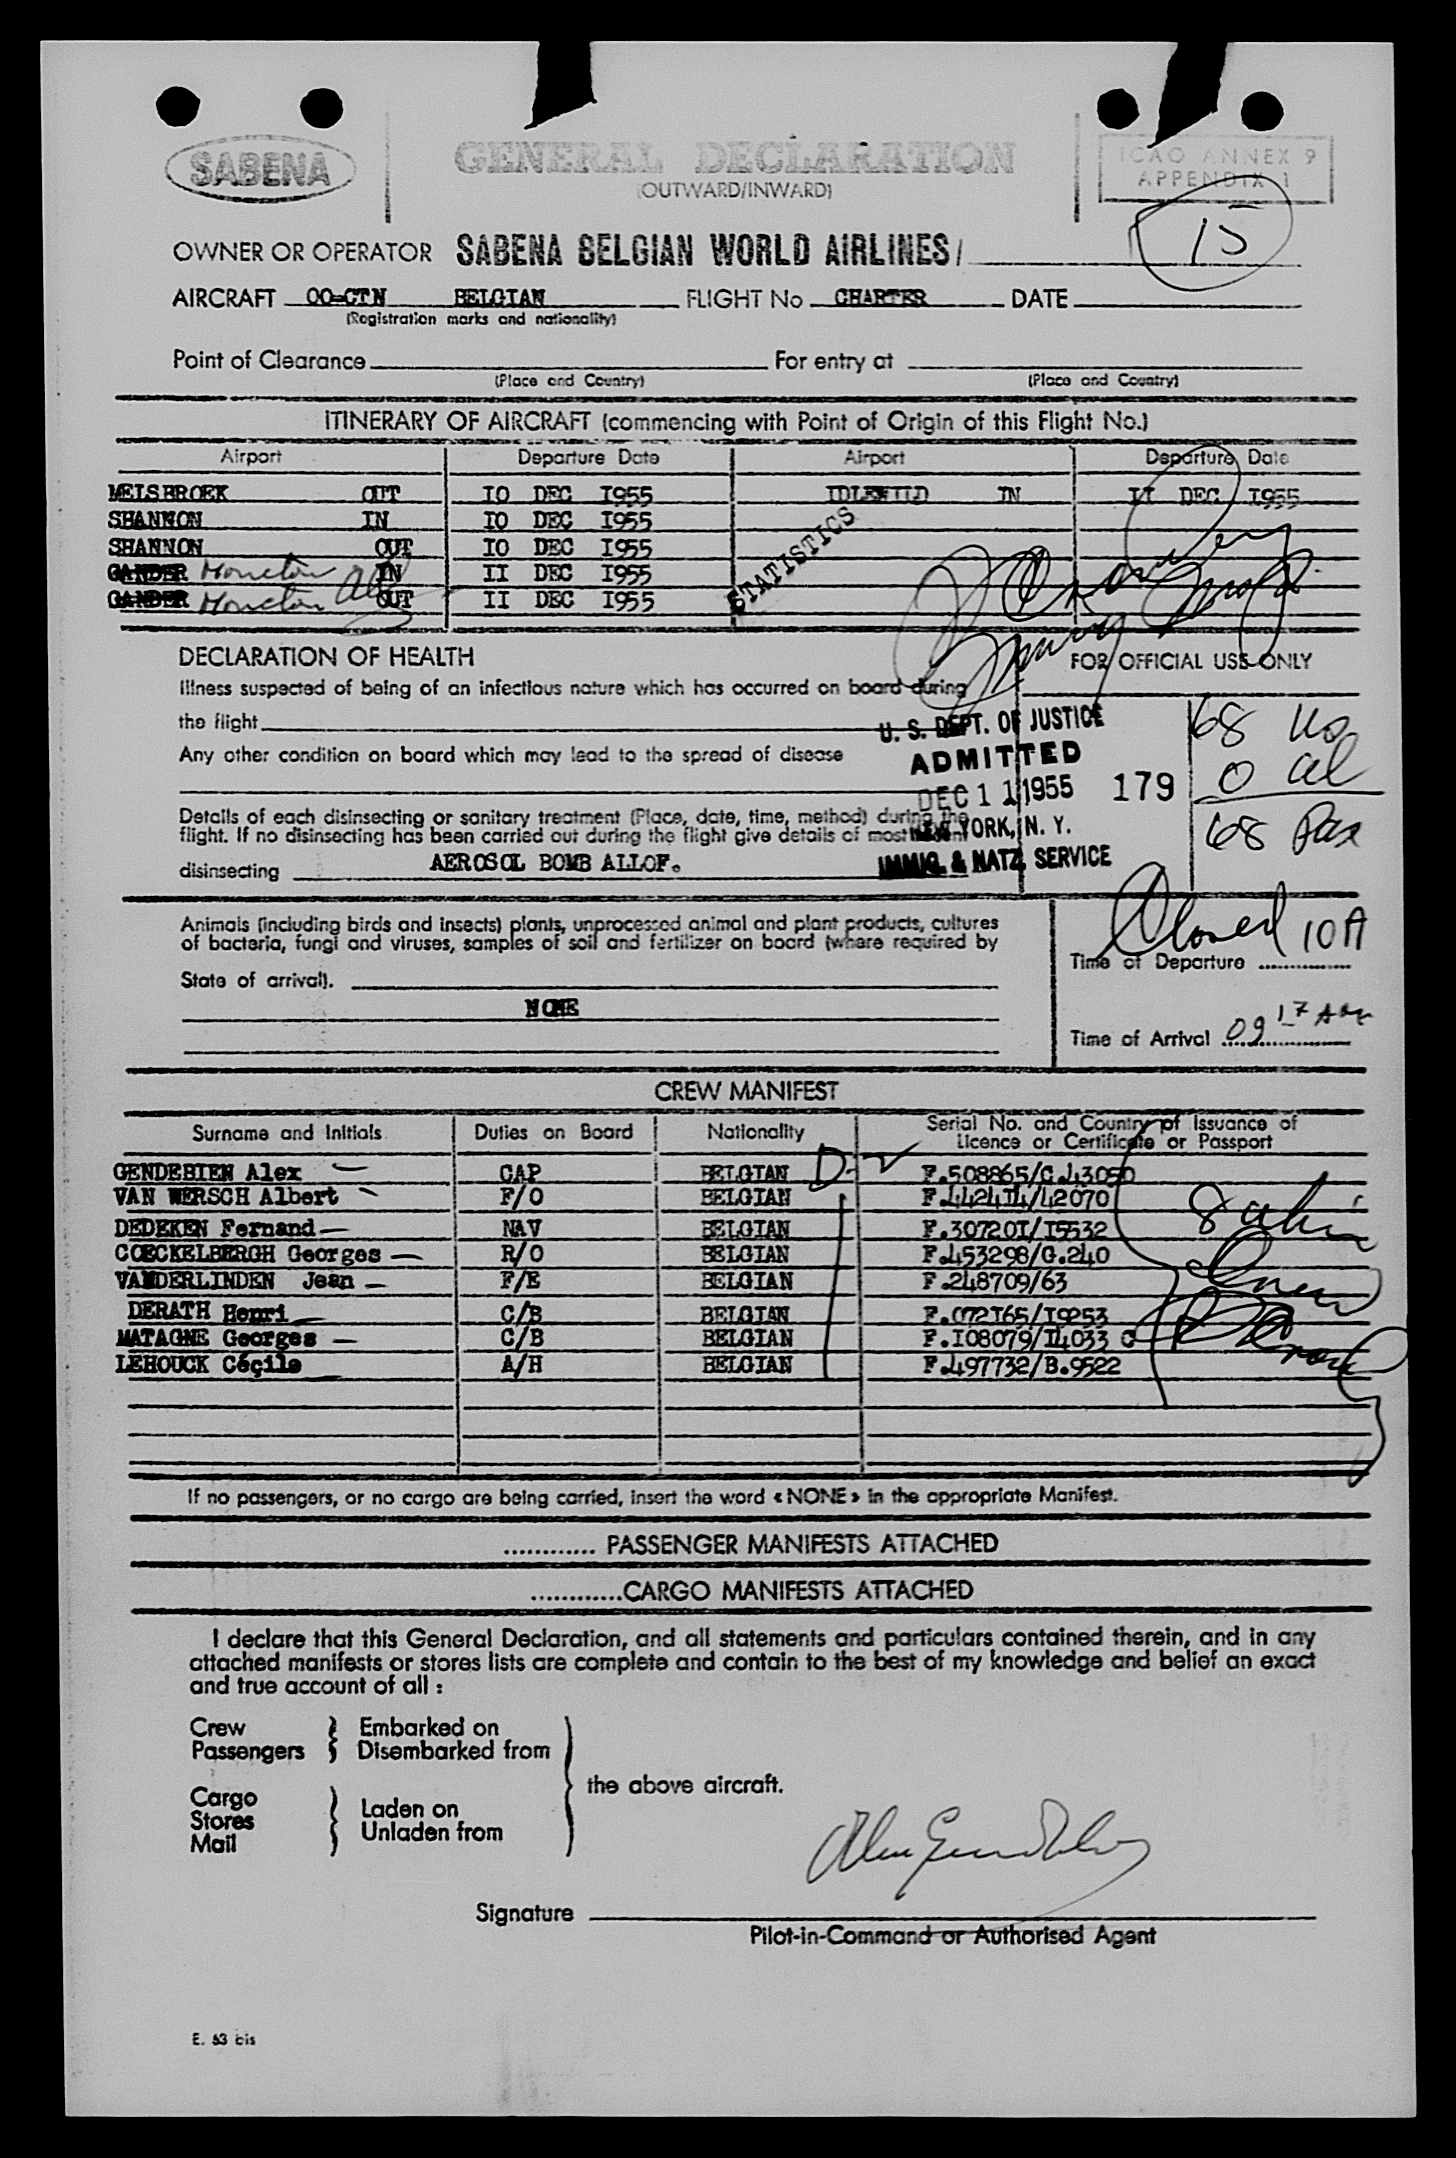 SABENA
GENERAL DECLARATION
(OUTWARD/INWARD)
ICAO ANNEX 9
APPENDIX 1
15
OWNER OR OPERATOR SABENA BELGIAN WORLD AIRLINES/
AIRCRAFT OO-CTN BELGIAN FLIGHT No CHARTER DATE
(Registration marks and nationality)
Point of Clearance For entry at
(Place and Country) (Place and Country)
ITINERARY OF AIRCRAFT (commencing with Point of Origin of this Flight No.)
Airport Departure Date Airport Departure Date
MELSBROEK OUT IO DEC I955 IDLEWILD IN II DEC I955
SHANNON IN IO DEC I955
SHANNON OUT IO DEC I955
GANDER Moncton IN II DEC I955
GANDER Moncton OUT II DEC I955
STATISTICS
DECLARATION OF HEALTH
FOR OFFICIAL USE ONLY
Illness suspected of being of an infectious nature which has occurred on board during
the flight
U. S. DEPT. OF JUSTICE
68 us
Any other condition on board which may lead to the spread of disease
ADMITTED
0 al
DEC 1 1 1955 179
Details of each disinsecting or sanitary treatment (Place, date, time, method) during the
flight. If no disinsecting has been carried out during the flight give details of most recent
NEW YORK, N. Y.
68 Pax
disinsecting AEROSOL BOMB ALLOF.
IMMIG. & NATZ. SERVICE
Animals (including birds and insects) plants, unprocessed animal and plant products, cultures
of bacteria, fungi and viruses, samples of soil and fertilizer on board (where required by
State of arrival).
Closed 10 A
Time of Departure
NONE
Time of Arrival 09 17
CREW MANIFEST
Surname and Initials Duties on Board Nationality Serial No. and Country of Issuance of
Licence or Certificate or Passport
GENDEBIEN Alex CAP BELGIAN F.508865/G.43050
VAN WERSCH Albert F/O BELGIAN F.442414/42070
DEDEKEN Fernand NAV BELGIAN F.30720I/I5532
COECKELBERGH Georges R/O BELGIAN F.453298/G.240
VANDERLINDEN Jean F/E BELGIAN F.248709/63
DERATH Henri C/B BELGIAN F.072I65/I9253
MATAGNE Georges C/B BELGIAN F.I08079/I4033 C
LEHOUCK Céçile A/H BELGIAN F.497732/B.9522
If no passengers, or no cargo are being carried, insert the word «NONE» in the appropriate Manifest.
............ PASSENGER MANIFESTS ATTACHED
............CARGO MANIFESTS ATTACHED
I declare that this General Declaration, and all statements and particulars contained therein, and in any
attached manifests or stores lists are complete and contain to the best of my knowledge and belief an exact
and true account of all :
Crew Embarked on
Passengers Disembarked from
the above aircraft.
Cargo
Stores Laden on
Mail Unladen from
Signature
Pilot-in-Command or Authorised Agent
E. 53 bis